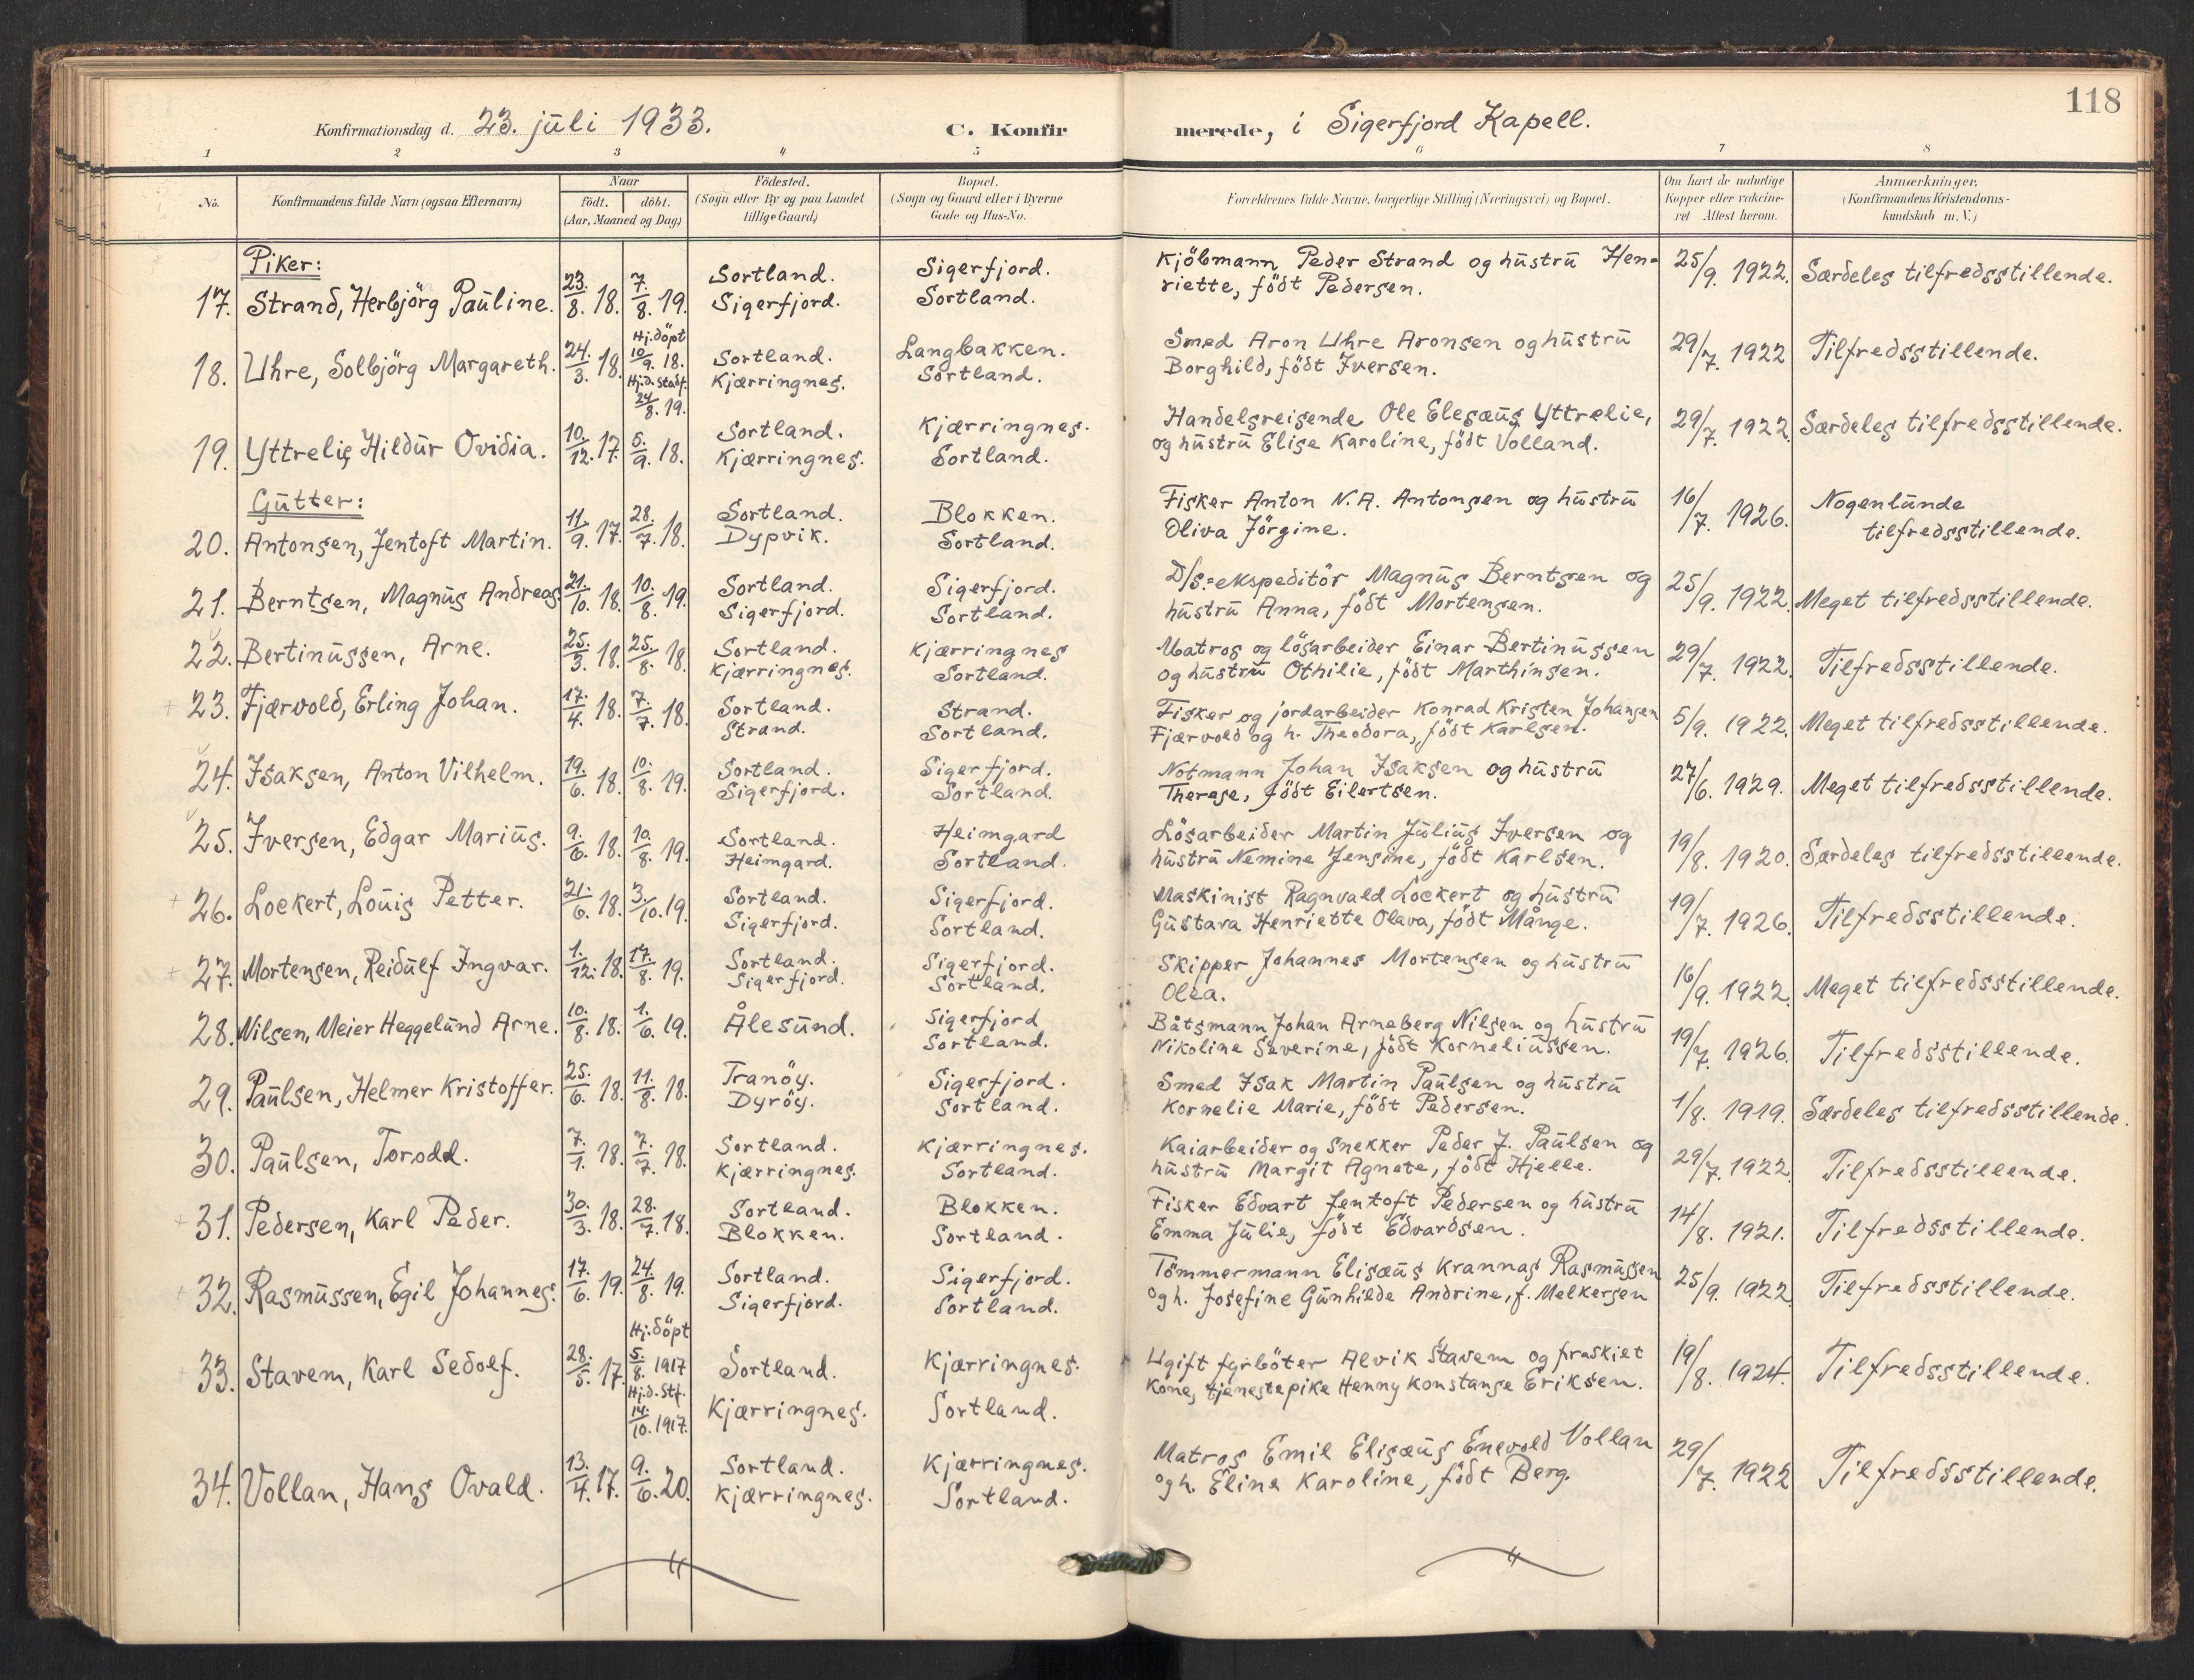 118
Konfirmationsdag d. 23. juli 1933. C. Konfirmerede, i Sigerfjord Kapell.
1 2 3 4 5 6 7 8
No. Konfirmandens fulde Navn (ogsaa Efternavn) Naar födt. döbt. (Aar, Maaned og Dag) Födested. (Sogn eller By og paa Landet tillige Gaard) Bopæl. (Sogn og Gaard eller i Byerne Gade og Hus-No. Forældrenes fulde Navne, borgerlige Stilling (Næringsvei) og Bopæl. Om havt de naturlige Kopper eller vakcineret Attest herom. Anmærkninger. (Konfirmandens Kristendomskundskab m. V.)
Piker:
17. Strand, Herbjörg Pauline. 23./8. 18. 7./8. 19. Sortland. Sigerfjord. Sigerfjord. Sortland. Kjöbmann Peder Strand og hustru Henriette, födt Pedersen. 25/9. 1922. Særdeles tilfredsstillende.
18. Uhre, Solbjörg Margareth. 24./3. 18. Hj.döpt 10/9. 18. Hj.d. stadf. 24/8. 19. Sortland. Kjærringnes. Langbakken. Sortland. Smed Aron Uhre Aronsen og hustru Borghild, födt Iversen. 29/7. 1922 Tilfredsstillende.
19. Yttrelie, Hildur Ovidia. 10./12. 17. 5./9. 18. Sortland. Kjærringnes. Kjærringnes. Sortland. Handelsreisende Ole Elesæus Yttrelie, og hustru Elise Karoline, födt Volland. 29/7. 1922. Særdeles tilfredsstillende.
Gutter:
20. Antonsen, Jentoft Martin. 11./9. 17. 28./7. 18. Sortland. Dypvik. Blokken. Sortland. Fisker Anton N.A. Antonsen og hustru Oliva Jörgine. 16/7. 1926. Nogenlunde tilfredsstillende.
21. Berntsen, Magnus Andreas 21./10. 18. 10./8. 19. Sortland. Sigerfjord. Sigerfjord. Sortland. D/S.=ekspeditör Magnus Berntsen og hustru Anna, födt Mortensen. 25/9. 1922. Meget tilfredsstillende.
22. Bertinussen, Arne. 25./3. 18. 25./8. 18. Sortland. Kjærringnes. Kjærringnes Sortland. Matros og lösarbeider Einar Bertinussen og hustru Othilie, födt Marthinsen. 29/7. 1922. Tilfredsstillende.
23. Fjærvold, Erling Johan. 17./4. 18. 7./7. 18. Sortland. Strand. Strand. Sortland. Fisker og jordarbeider Konrad Kristen Johansen Fjærvold og h. Theodora, födt Karlsen. 5/9. 1922. Meget tilfredsstillende.
24. Isaksen, Anton Vilhelm. 19./6. 18. 10./8. 19. Sortland. Sigerfjord. Sigerfjord. Sortland. Notmann Johan Isaksen og hustru Therese, födt Eilertsen. 27/6. 1929. Meget tilfredsstillende.
25. Iversen, Edgar Marius. 9./6. 18. 10./8. 19. Sortland. Heimgard. Heimgard Sortland. Lösarbeider Martin Julius Iversen og hustru Nemine Jensine, födt Karlsen. 19/8. 1920. Særdeles tilfredsstillende.
26. Lockert, Louis Petter. 21./6. 18. 3./10. 19. Sortland. Sigerfjord. Sigerfjord. Sortland. Maskinist Ragnvald Lockert og hustru Gustava Henriette Olava, födt Månge. 19/7. 1926. Tilfredsstillende.
27. Mortensen, Reidulf Ingvar. 1./12. 18. 17./8. 19. Sortland. Sigerfjord. Sigerfjord. Sortland. Skipper Johannes Mortensen og hustru Olea. 16/9. 1922. Meget tilfredsstillende.
28. Nilsen, Meier Heggelund Arne. 10./8. 18. 1./6. 19. Ålesund. Sigerfjord Sortland. Båtsmann Johan Arneberg Nilsen og hustru Nikoline Severine, födt Korneliussen. 19/7. 1926. Tilfredsstillende.
29. Paulsen, Helmer Kristoffer. 25./6. 18. 11./8. 18. Tranöy. Dyröy. Sigerfjord. Sortland. Smed Isak Martin Paulsen og hustru Kornelie Marie, födt Pedersen. 1/8. 1919. Særdeles tilfredsstillende.
30. Paulsen, Torodd. 7./1. 18. 7./7. 18. Sortland. Kjærringnes. Kjærringnes. Sortland. Kaiarbeider og snekker Peder J. Paulsen og hustru Margit Agnete, födt Hjelle. 29/7. 1922. Tilfredsstillende.
31. Pedersen, Karl Peder. 30./3. 18. 28./7. 18. Sortland. Blokken. Blokken. Sortland. Fisker Edvart Jentoft Pedersen og hustru Emma Julie, födt Edvardsen. 14/8. 1921. Tilfredsstillende.
32. Rasmussen, Egil Johannes. 17./6. 19. 24./8. 19. Sortland. Sigerfjord. Sigerfjord. Sortland. Tömmermann Elisæus Krannas Rasmussen og h. Josefine Gunhilde Andrine, f. Melkersen 25/9. 1922. Tilfredsstillende.
33. Stavem, Karl Sedolf. 28./5. 17. Hj.döpt 5./8. 1917 Hj.d. Stf. 14./10. 1917. Sortland. Kjærringnes. Kjærringnes. Sortland. Ugift fyrböter Alvik Stavem og fraskiet kone, tjenestepike Henny Konstanse Eriksen. 19/8. 1924. Tilfredsstillende.
34. Vollan, Hans Ovald. 13./4. 17. 9./6. 20. Sortland. Kjærringnes. Kjærringnes. Sortland. Matros Emil Elisæus Enevold Vollan og h. Eline Karoline, födt Berg. 29/7. 1922 Tilfredsstillende.